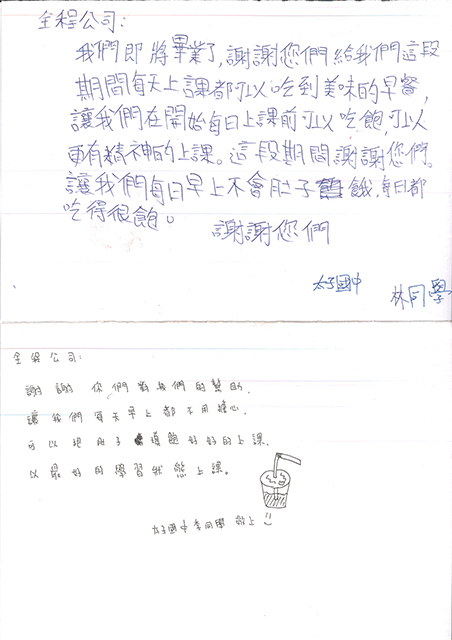 全程公司：
我們即將畢業了，謝謝您們給我們這段
期間每天上課都可以吃到美味的早餐，
讓我們在開始每日上課前可以吃飽，可以
更有精神的上課。這段期間謝謝您們。
讓我們每日早上不會肚子餓，每日都
吃得很飽。
謝謝您們
太子國中 林同學
全程公司：
謝謝你們對我們的幫助，
讓我們每天早上都不用擔心，
可以把肚子填飽好好的上課，
以最好的學習狀態上課。
太子國中李同學 敬上